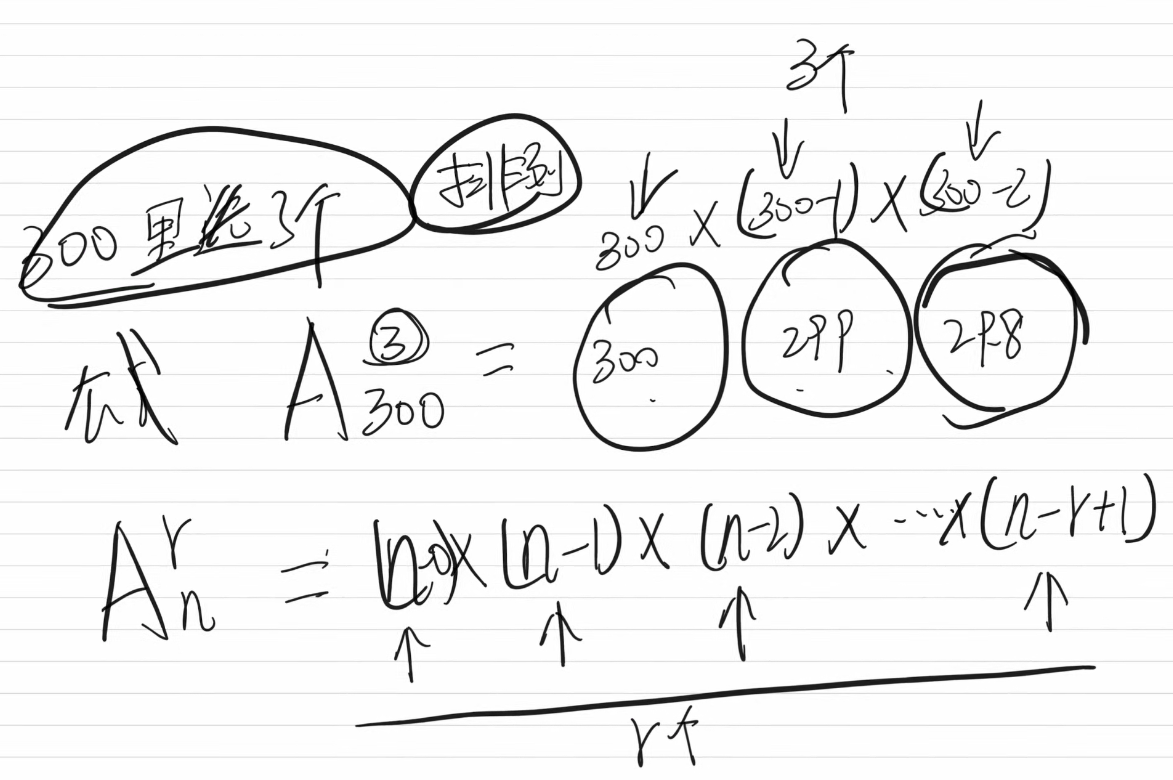 3个
300里选3个 排列 300×(300-1)×(300-2)
式 A³₃₀₀ = 300 299 298
Aʳₙ = (n-0)×(n-1)×(n-2)×…×(n-r+1)
r个